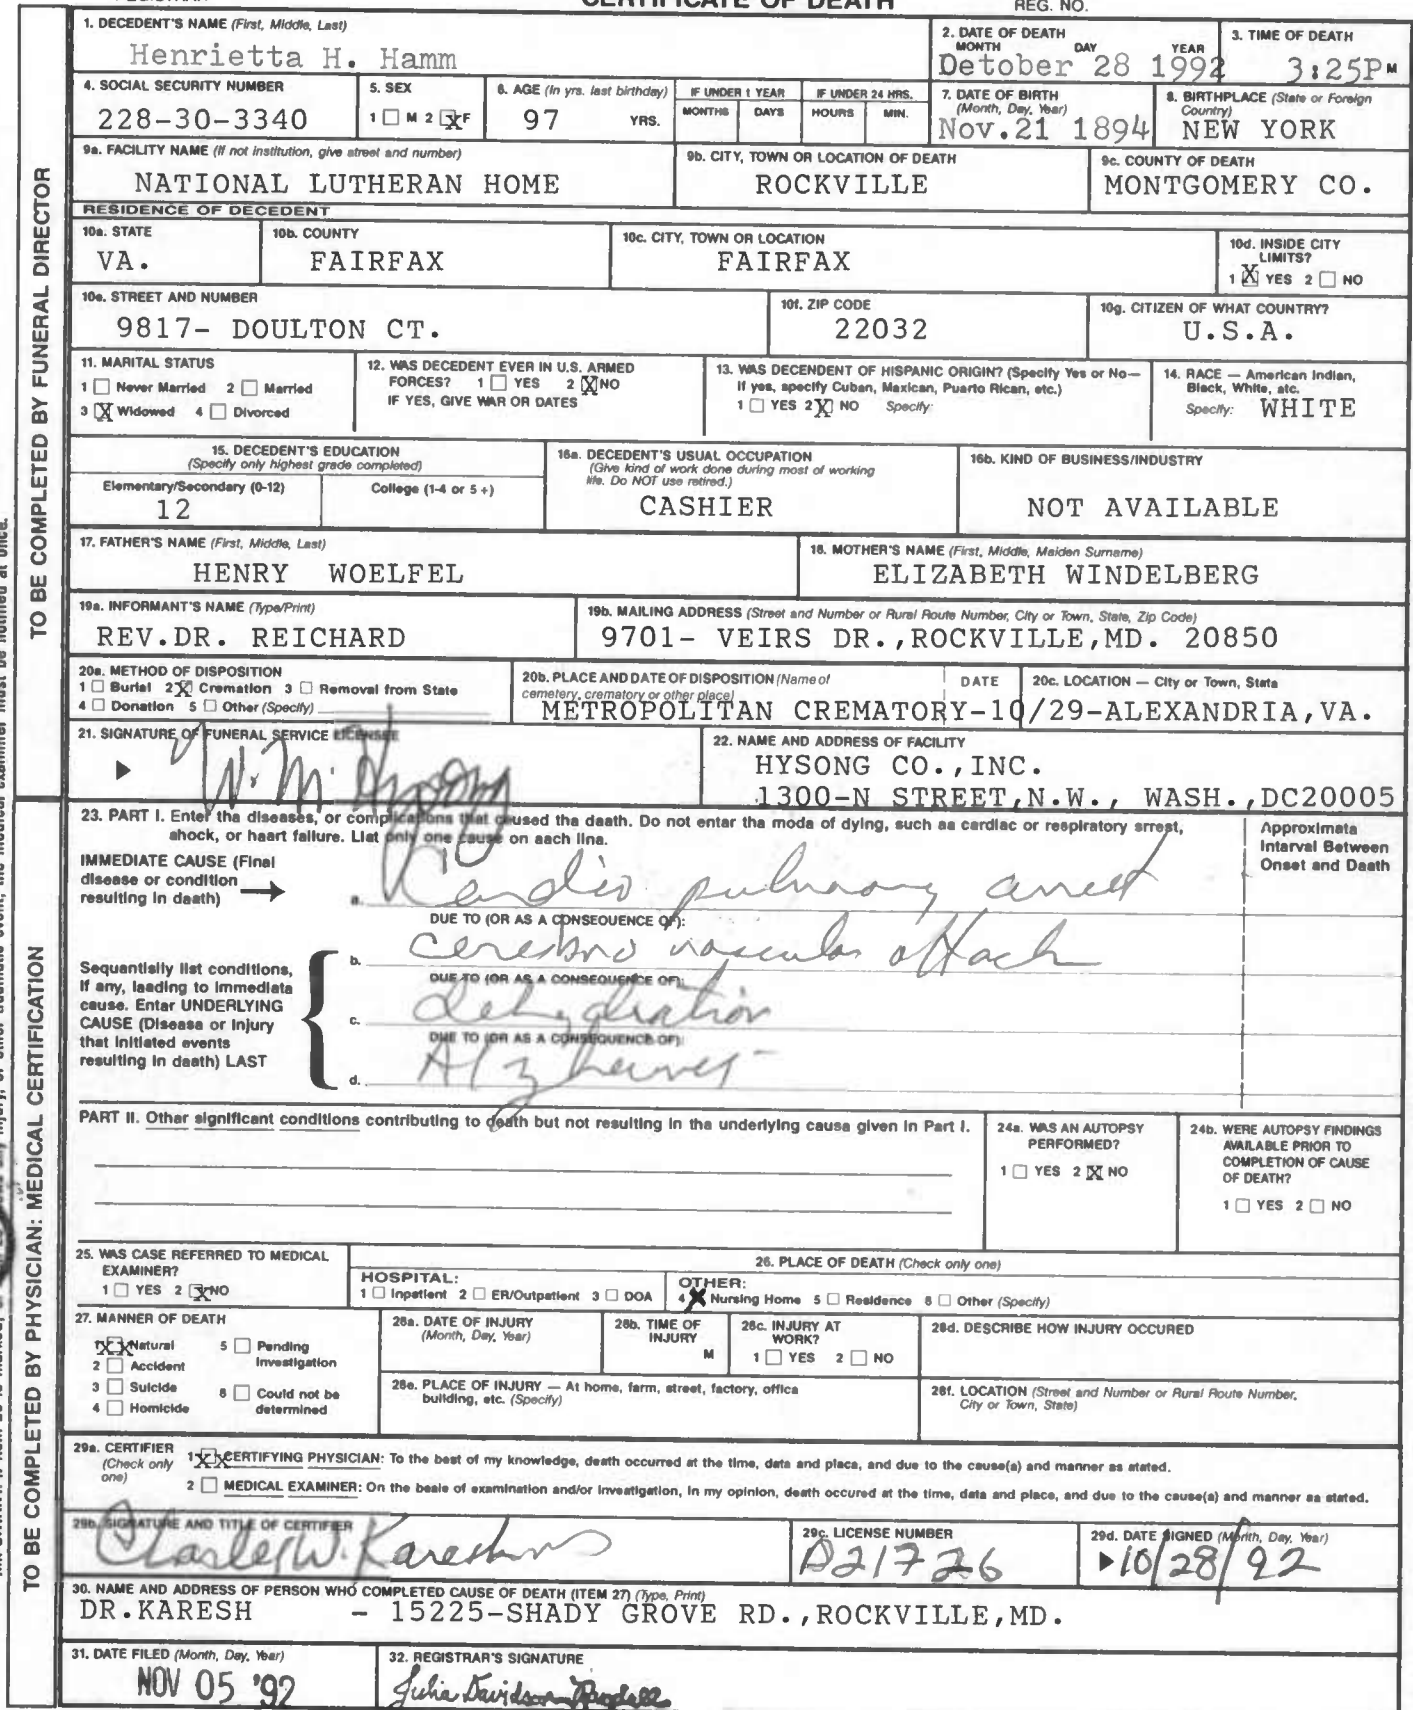 CERTIFICATE OF DEATH
REG. NO.
TO BE COMPLETED BY FUNERAL DIRECTOR
1. DECEDENT'S NAME (First, Middle, Last)
Henrietta H. Hamm
2. DATE OF DEATH
MONTH DAY YEAR
Detober 28 1992
3. TIME OF DEATH
3:25P M
4. SOCIAL SECURITY NUMBER
228-30-3340
5. SEX
1 ☐ M 2 ☒ F
6. AGE (In yrs. last birthday)
97 YRS.
IF UNDER 1 YEAR
MONTHS DAYS
IF UNDER 24 HRS.
HOURS MIN.
7. DATE OF BIRTH
(Month, Day, Year)
Nov.21 1894
8. BIRTHPLACE (State or Foreign
Country)
NEW YORK
9a. FACILITY NAME (If not institution, give street and number)
NATIONAL LUTHERAN HOME
9b. CITY, TOWN OR LOCATION OF DEATH
ROCKVILLE
9c. COUNTY OF DEATH
MONTGOMERY CO.
RESIDENCE OF DECEDENT
10a. STATE
VA.
10b. COUNTY
FAIRFAX
10c. CITY, TOWN OR LOCATION
FAIRFAX
10d. INSIDE CITY
LIMITS?
1 ☒ YES 2 ☐ NO
10e. STREET AND NUMBER
9817- DOULTON CT.
10f. ZIP CODE
22032
10g. CITIZEN OF WHAT COUNTRY?
U.S.A.
11. MARITAL STATUS
1 ☐ Never Married 2 ☐ Married
3 ☒ Widowed 4 ☐ Divorced
12. WAS DECEDENT EVER IN U.S. ARMED
FORCES? 1 ☐ YES 2 ☒ NO
IF YES, GIVE WAR OR DATES
13. WAS DECENDENT OF HISPANIC ORIGIN? (Specify Yes or No—
If yes, specify Cuban, Maxican, Puarto Rican, etc.)
1 ☐ YES 2 ☒ NO Specify:
14. RACE — American Indian,
Black, White, atc.
Specify: WHITE
15. DECEDENT'S EDUCATION
(Specify only highest grade completed)
Elementary/Secondary (0-12)
12
College (1-4 or 5 +)
16a. DECEDENT'S USUAL OCCUPATION
(Give kind of work done during most of working
life. Do NOT use retired.)
CASHIER
16b. KIND OF BUSINESS/INDUSTRY
NOT AVAILABLE
17. FATHER'S NAME (First, Middle, Last)
HENRY WOELFEL
18. MOTHER'S NAME (First, Middle, Maiden Surname)
ELIZABETH WINDELBERG
19a. INFORMANT'S NAME (Type/Print)
REV.DR. REICHARD
19b. MAILING ADDRESS (Street and Number or Rural Route Number, City or Town, State, Zip Code)
9701- VEIRS DR.,ROCKVILLE,MD. 20850
20a. METHOD OF DISPOSITION
1 ☐ Burial 2 ☒ Cremation 3 ☐ Removal from State
4 ☐ Donation 5 ☐ Other (Specify)
20b. PLACE AND DATE OF DISPOSITION (Name of
cemetery, crematory or other place)
DATE
20c. LOCATION — City or Town, Stata
METROPOLITAN CREMATORY-10/29-ALEXANDRIA,VA.
21. SIGNATURE OF FUNERAL SERVICE LICENSEE
W. M. Hysong
22. NAME AND ADDRESS OF FACILITY
HYSONG CO.,INC.
1300-N STREET,N.W., WASH.,DC20005
TO BE COMPLETED BY PHYSICIAN: MEDICAL CERTIFICATION
23. PART I. Enter tha diseases, or complications that caused tha daath. Do not entar tha moda of dying, such aa cardlac or respiratory srrest,
ahock, or haart failure. Llat only one cause on aach lina.
Approximata
Intarval Batween
Onset and Daath
IMMEDIATE CAUSE (Final
disease or condition
resulting In death)
a. Cardio pulmonary arrest
DUE TO (OR AS A CONSEOUENCE OF):
Sequantislly list conditions,
If any, laading to immediata
cause. Entar UNDERLYING
CAUSE (Disease or injury
that initiated events
resulting in daath) LAST
b. cerebro vascular attack
DUE TO (OR AS A CONSEQUENCE OF):
c. dehydration
DUE TO (OR AS A CONSEQUENCE OF):
d. Alzheimer
PART II. Othar significant conditions contributing to death but not resulting in tha underlying causa given in Part I.
24a. WAS AN AUTOPSY
PERFORMED?
1 ☐ YES 2 ☒ NO
24b. WERE AUTOPSY FINDINGS
AVAILABLE PRIOR TO
COMPLETION OF CAUSE
OF DEATH?
1 ☐ YES 2 ☐ NO
25. WAS CASE REFERRED TO MEDICAL
EXAMINER?
1 ☐ YES 2 ☒ NO
26. PLACE OF DEATH (Check only one)
HOSPITAL:
1 ☐ Inpatient 2 ☐ ER/Outpatient 3 ☐ DOA
OTHER:
4 ☒ Nursing Home 5 ☐ Residence 6 ☐ Other (Specify)
27. MANNER OF DEATH
1 ☒ Natural 5 ☐ Pending
Investigation
2 ☐ Accident
3 ☐ Suicide 6 ☐ Could not be
determined
4 ☐ Homicide
28a. DATE OF INJURY
(Month, Day, Year)
28b. TIME OF
INJURY
M
28c. INJURY AT
WORK?
1 ☐ YES 2 ☐ NO
28d. DESCRIBE HOW INJURY OCCURED
28e. PLACE OF INJURY — At home, farm, street, factory, offica
building, etc. (Specify)
28f. LOCATION (Street and Number or Rural Route Number,
City or Town, State)
29a. CERTIFIER
(Check only
one)
1 ☒ CERTIFYING PHYSICIAN: To the best of my knowledge, death occurred at the time, data and placa, and due to the cause(a) and manner as atated.
2 ☐ MEDICAL EXAMINER: On the basle of examination and/or Investigation, in my opinion, death occured at the time, data and place, and due to the cause(a) and manner aa stated.
29b. SIGNATURE AND TITLE OF CERTIFIER
Charles W. Karesh
29c. LICENSE NUMBER
D21726
29d. DATE SIGNED (Month, Day, Year)
10/28/92
30. NAME AND ADDRESS OF PERSON WHO COMPLETED CAUSE OF DEATH (ITEM 27) (Type, Print)
DR.KARESH - 15225-SHADY GROVE RD.,ROCKVILLE,MD.
31. DATE FILED (Month, Day, Year)
NOV 05 '92
32. REGISTRAR'S SIGNATURE
Julia Davidson-Randall